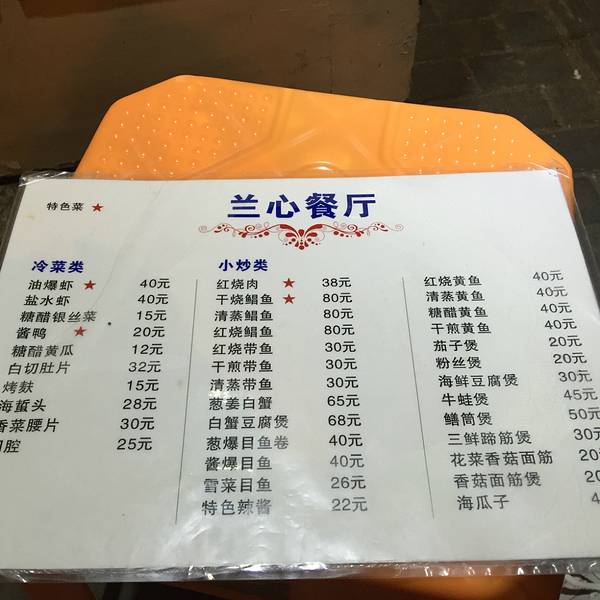 特色菜 ★
兰心餐厅
冷菜类
油爆虾 ★ 40元
盐水虾 40元
糖醋银丝菜 15元
酱鸭 ★ 20元
糖醋黄瓜 12元
白切肚片 32元
烤麸 15元
海蜇头 28元
香菜腰片 30元
腔 25元
小炒类
红烧肉 ★ 38元
干烧鲳鱼 ★ 80元
清蒸鲳鱼 80元
红烧鲳鱼 80元
红烧带鱼 30元
干煎带鱼 30元
清蒸带鱼 30元
葱姜白蟹 65元
白蟹豆腐煲 68元
葱爆目鱼卷 40元
酱爆目鱼 40元
雪菜目鱼 26元
特色辣酱 22元
红烧黄鱼 40元
清蒸黄鱼 40元
糖醋黄鱼 40元
干煎黄鱼 40元
茄子煲 20元
粉丝煲 20元
海鲜豆腐煲 30元
牛蛙煲 45元
鳝筒煲 50元
三鲜蹄筋煲 30元
花菜香菇面筋 20
香菇面筋煲 20
海瓜子 4